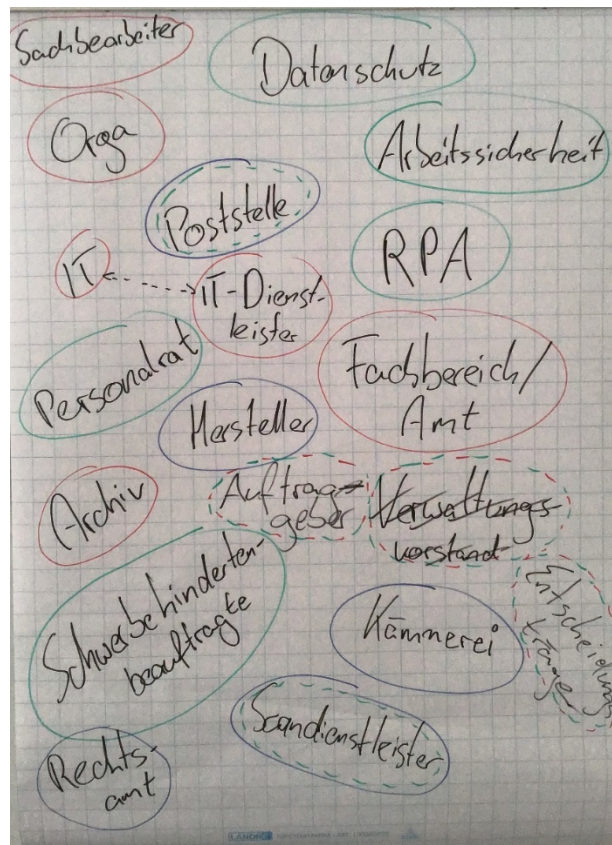 Sachbearbeiter
Datenschutz
Orga
Arbeitssicherheit
Poststelle
RPA
IT
IT-Dienst-
leister
Personalrat
Fachbereich/
Amt
Hersteller
Archiv
Auftrag-
geber
Verwaltungs-
vorstand
Schwerbehinderten-
beauftragte
Kämmerei
Entscheidungs
träger
Scandienstleister
Rechts-
amt
LANDRÉ